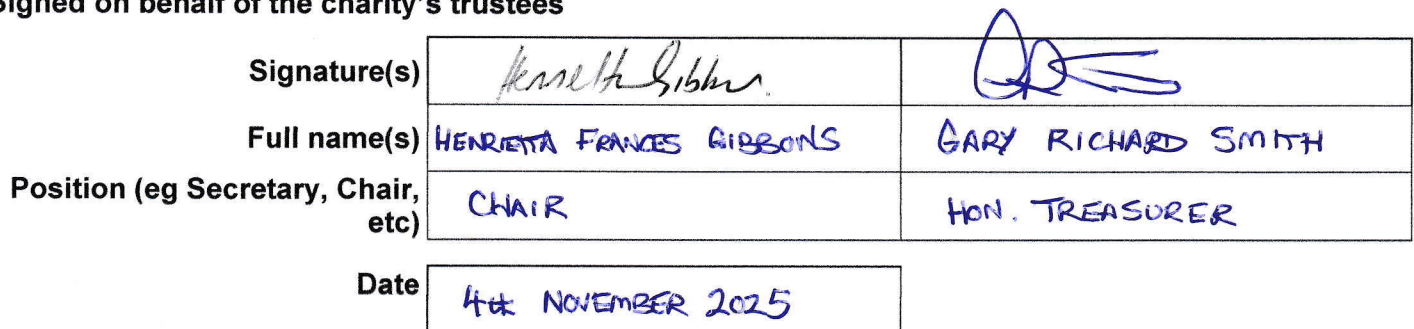 Signed on behalf of the charity's trustees
Signature(s) Henrietta Gibbons.
Full name(s) HENRIETTA FRANCES GIBBONS GARY RICHARD SMITH
Position (eg Secretary, Chair, CHAIR HON. TREASURER
etc)
Date 4th NOVEMBER 2025